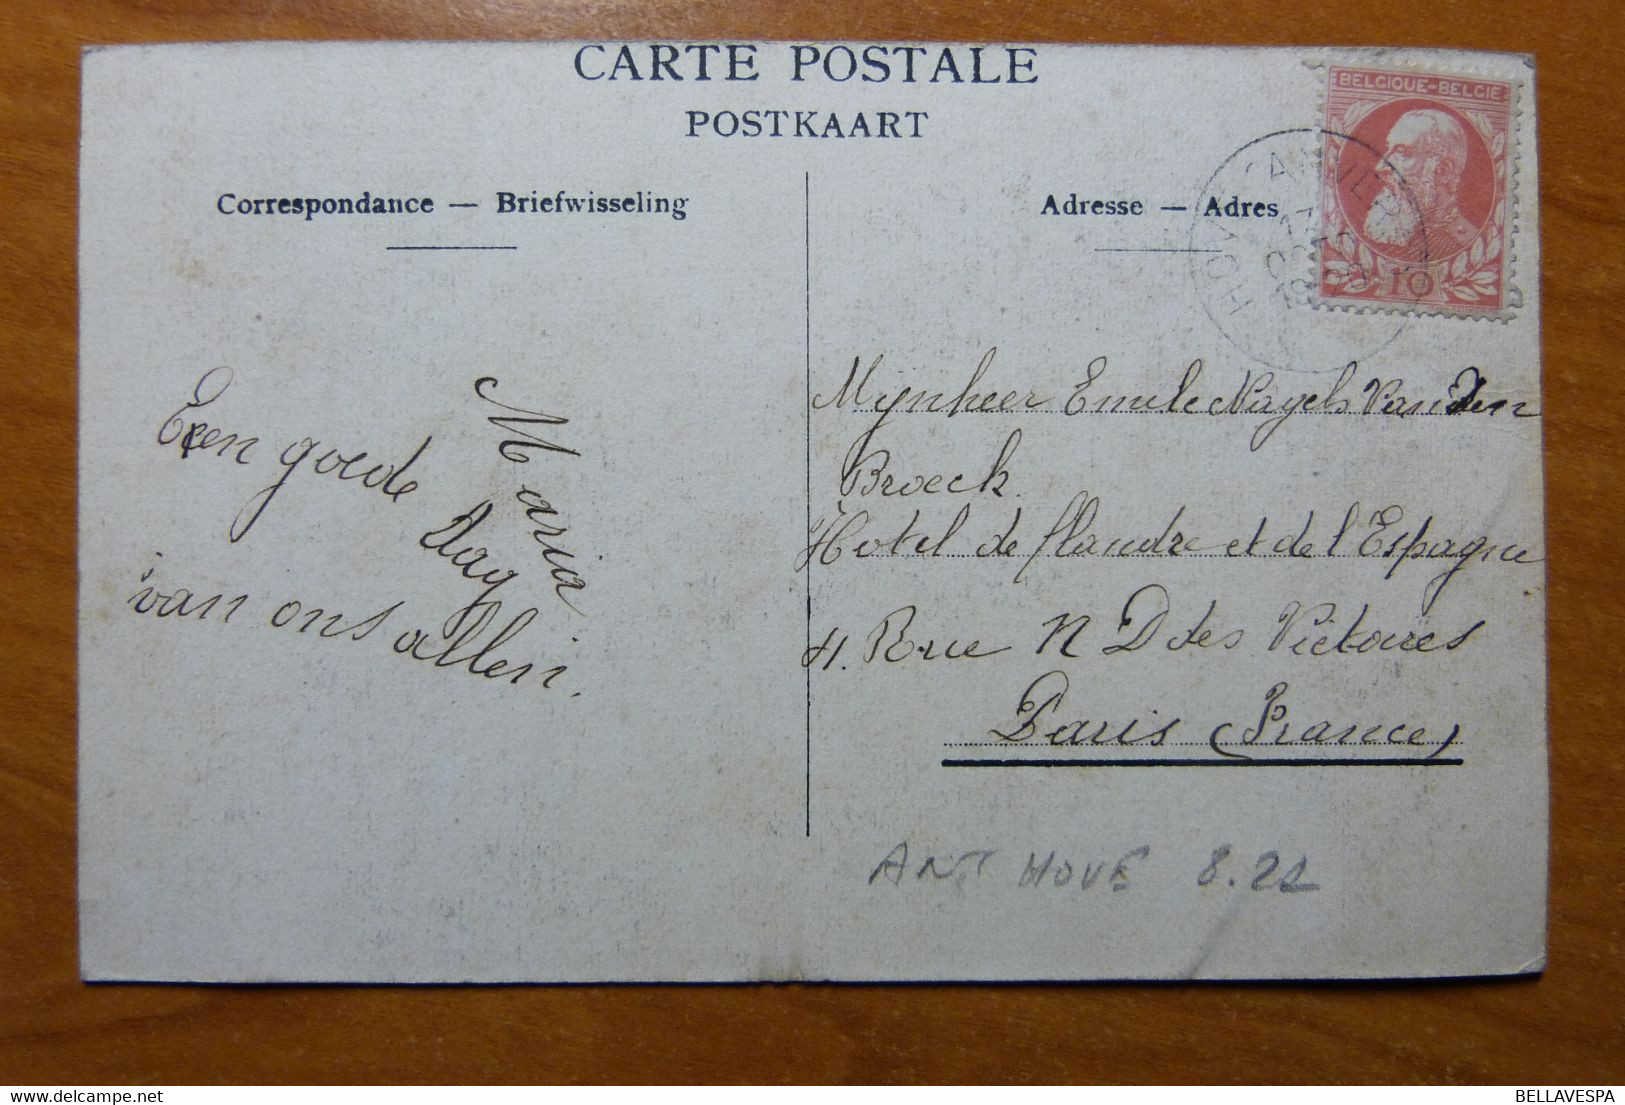 CARTE POSTALE
POSTKAART
Correspondance — Briefwisseling
Adresse — Adres
BELGIQUE-BELGIE
10
HOVE (ANVERS)
Een goede Dag
van ons allen.
Maria
Mynheer Emile Nagels Van Den
Broeck.
Hotel de flandre et de l'Espagne
4. Rue N D des Victoires
Paris (France)
ANT HOVE 8.22
BELLAVESPA